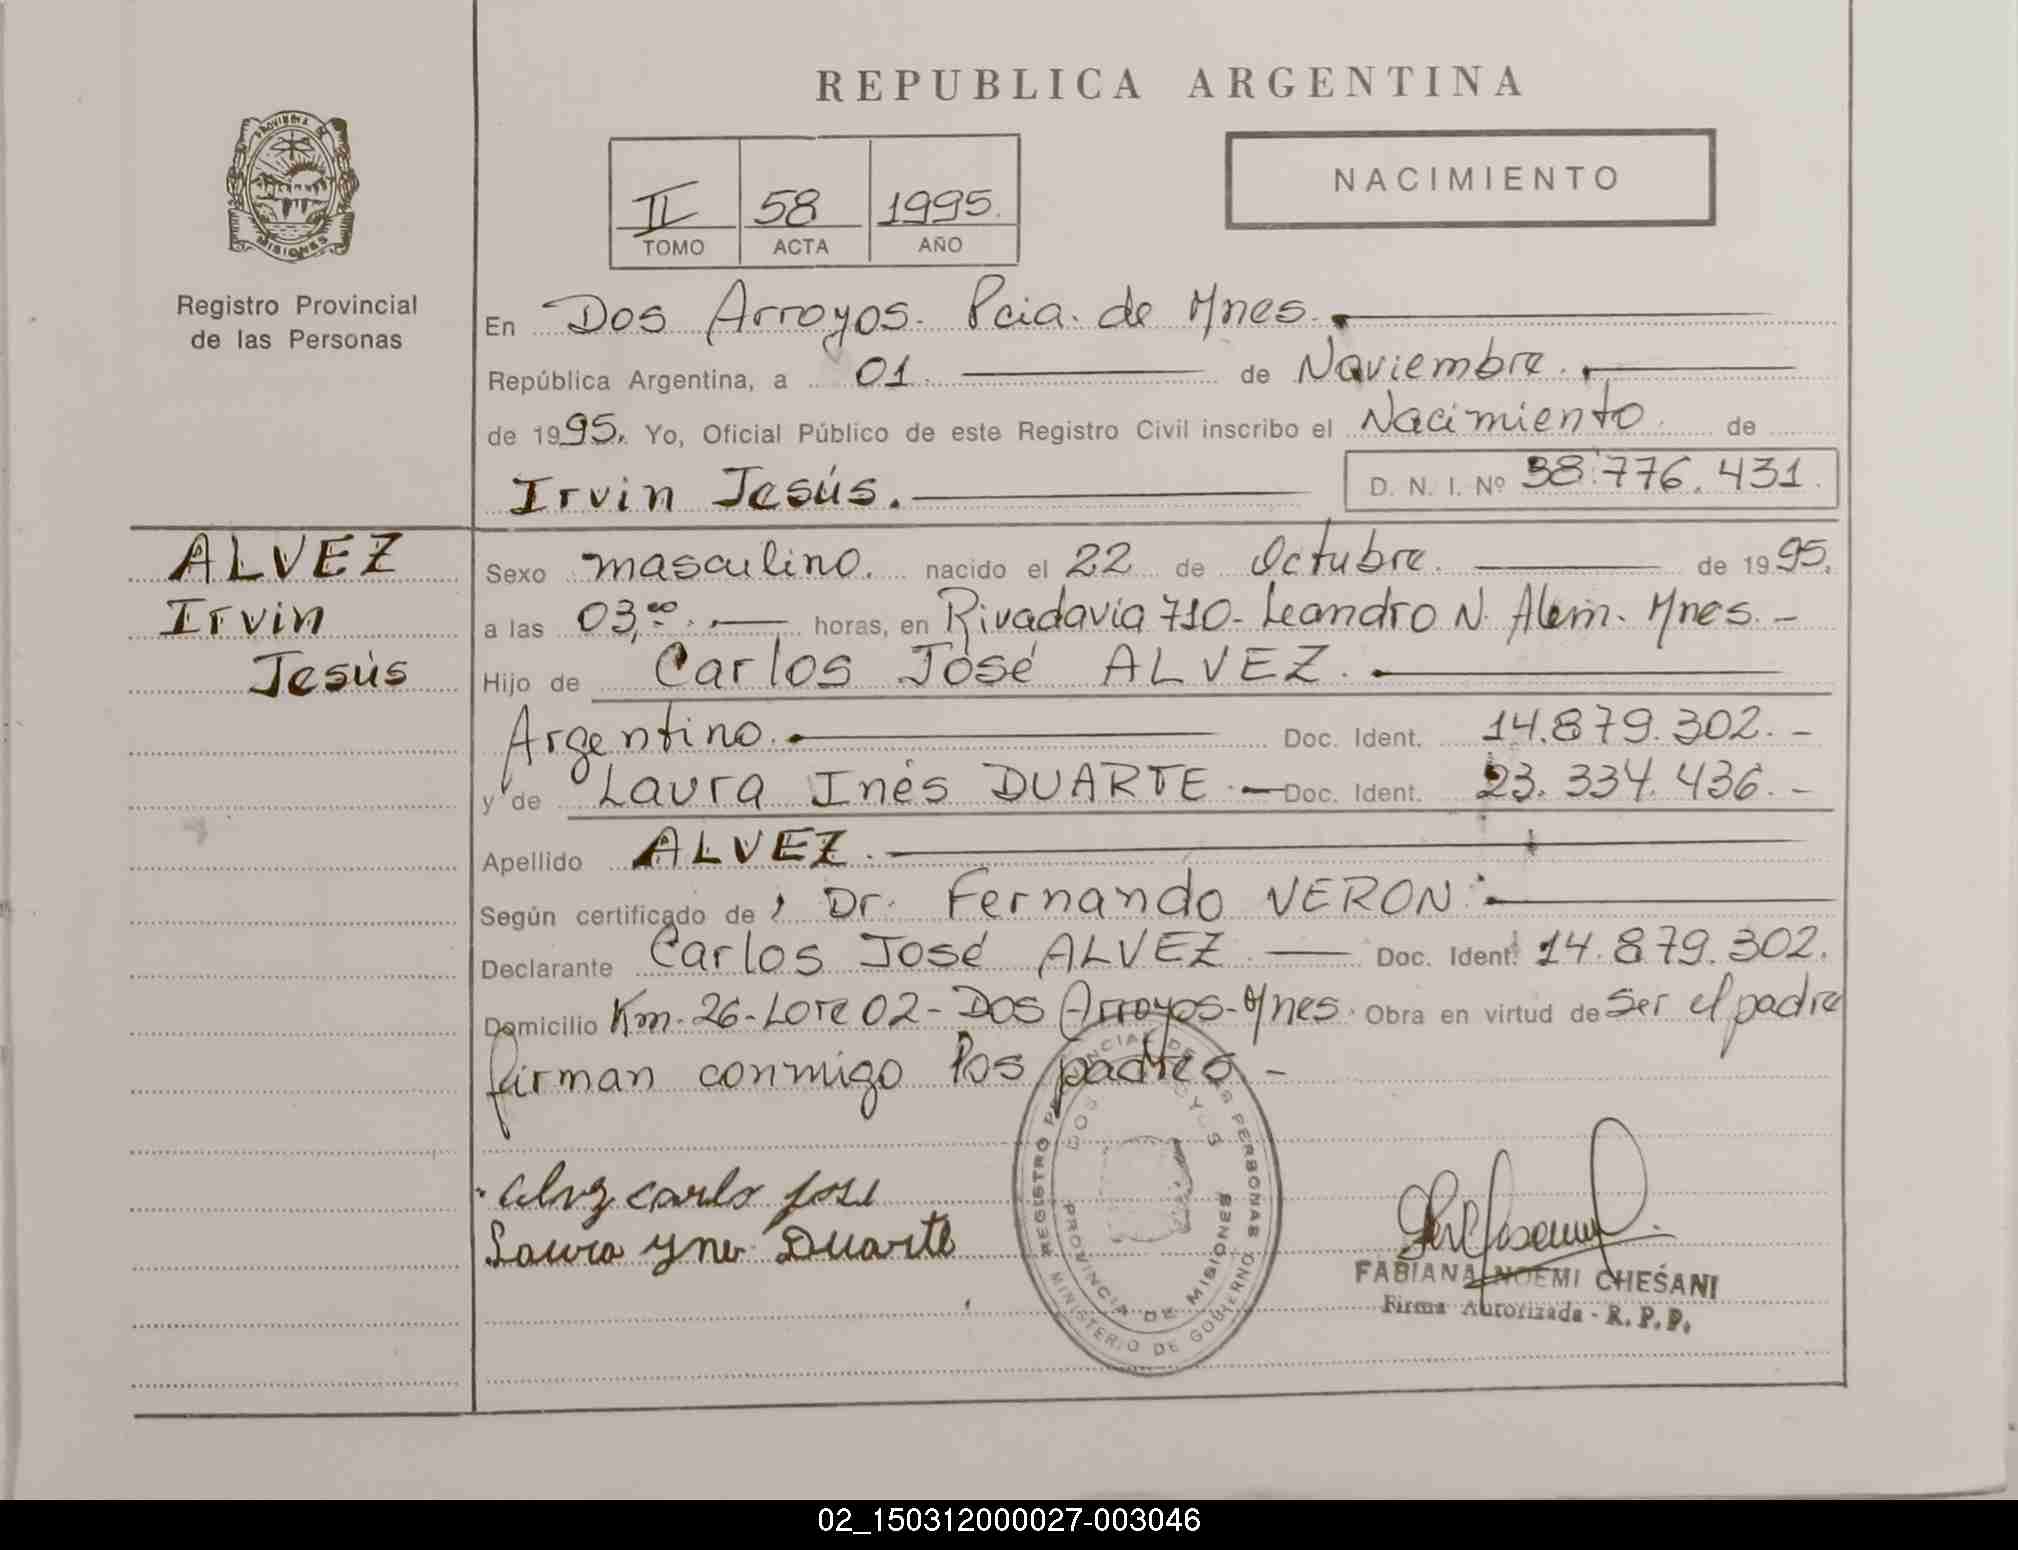 REPUBLICA ARGENTINA
PROVINCIA DE
MISIONES
Registro Provincial
de las Personas
NACIMIENTO
II 58 1995.
TOMO ACTA AÑO
En Dos Arroyos. Pcia. de Mnes.
República Argentina, a 01. de Noviembre.
de 1995. Yo, Oficial Público de este Registro Civil inscribo el Nacimiento de
Irvin Jesús. D. N. I. Nº 38.776.431.
ALVEZ
Irvin
Jesús
Sexo masculino. nacido el 22 de Octubre. de 1995.
a las 03,00. horas, en Rivadavia 710- Leandro N. Alem. Mnes. -
Hijo de Carlos José ALVEZ.
Argentino. Doc. Ident. 14.879.302. -
y de Laura Inés DUARTE - Doc. Ident. 23.334.436. -
Apellido ALVEZ.
Según certificado de, Dr. Fernando VERON.
Declarante Carlos José ALVEZ Doc. Ident. 14.879.302.
Domicilio Km. 26-Lote 02- Dos Arroyos-Mnes. Obra en virtud de ser el padre
firman conmigo los padres. -
Alvez Carlo José
Laura Ynes Duarte
REGISTRO PROVINCIAL DE LAS PERSONAS
DOS ARROYOS
PROVINCIA DE MISIONES
MINISTERIO DE GOBIERNO
FABIANA NOEMI CHESANI
Firma Autorizada - R. P. P.
02_150312000027-003046